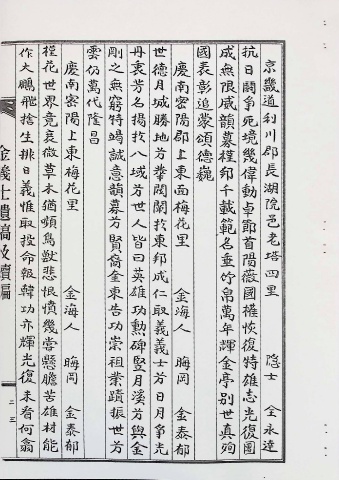 京畿道利川郡長湖院邑老塔四里 隐士 全永達
抗日鬪争死境幾偉動卓節首陽薇國權恢復特雄志光復國
成無限感韻募程邜千載範名垂竹帛萬年輝金亭别世真殉
國表彰追蒙頌德巍
慶南密陽郡上東面梅花里 金海人 晦岡 金泰郁
世德月城勝地方華閥閑於東邦成仁取義義士方日月争光
丹衷芳名揭於八域方世人皆曰英雄功勲碑竪月溪方與金
剛之無窮特竭誠意韻募方賢裔金東告功崇祖業蹟振世方
雲仍萬代隆昌
慶南密陽上東梅花里 金海人 晦岡 金泰郁
槿花世界竟哀微草木猶嚬鳥獸悲恨憤幾嘗懸膽苦雄材能
作大鵬飛捨生排日義惟取投命報韓功亦輝光復未看何翕
金義士遺稿及續編
二三